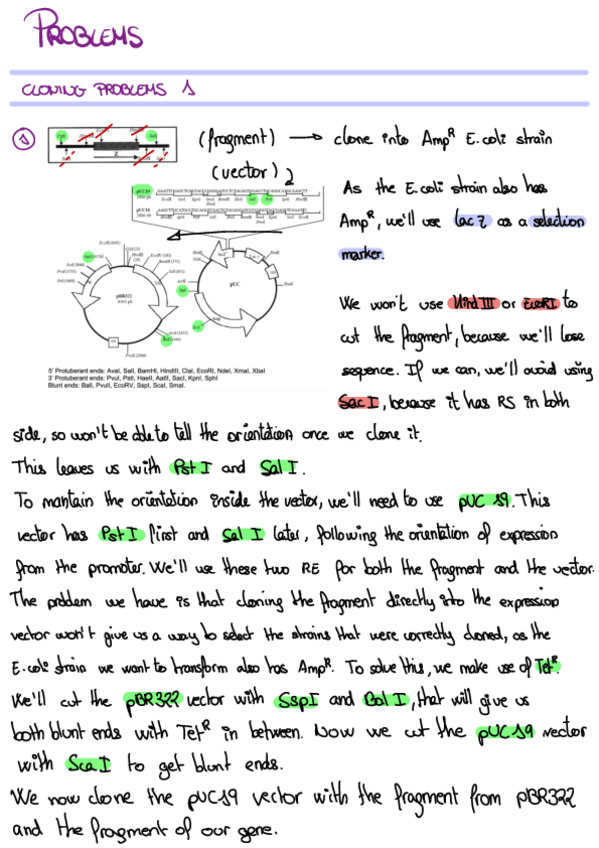 PROBLEMS
CLONING PROBLEMS 1
1
(fragment) → clone into AmpR E.coli strain
(vector)
As the E.coli strain also has
AmpR, we'll use lac Z as a selection
marker.
We won't use Hind III or EcoRI to
cut the fragment, because we'll lose
sequence. If we can, we'll avoid using
Sac I, because it has RS in both
pUC19
pUC18
pBR322
pUC
5' Protuberant ends: AvaI, SalI, BamHI, HindIII, ClaI, EcoRI, NdeI, XmaI, XbaI
3' Protuberant ends: PvuI, PstI, HaeII, AatII, SacI, KpnI, SphI
Blunt ends: BalI, PvuII, EcoRV, SspI, ScaI, SmaI.
side, so won't be able to tell the orientation once we clone it.
This leaves us with Pst I and Sal I.
To mantain the orientation inside the vector, we'll need to use pUC 19. This
vector has Pst I first and Sal I later, following the orientation of expression
from the promoter. We'll use these two RE for both the fragment and the vector.
The problem we have is that cloning the fragment directly into the expression
vector won't give us a way to select the strains that were correctly cloned, as the
E.coli strain we want to transform also has AmpR. To solve this, we make use of TetR.
We'll cut the pBR322 vector with SspI and Bal I, that will give us
both blunt ends with TetR in between. Now we cut the pUC19 vector
with Sca I to get blunt ends.
We now clone the pUC19 vector with the fragment from pBR322
and the fragment of our gene.